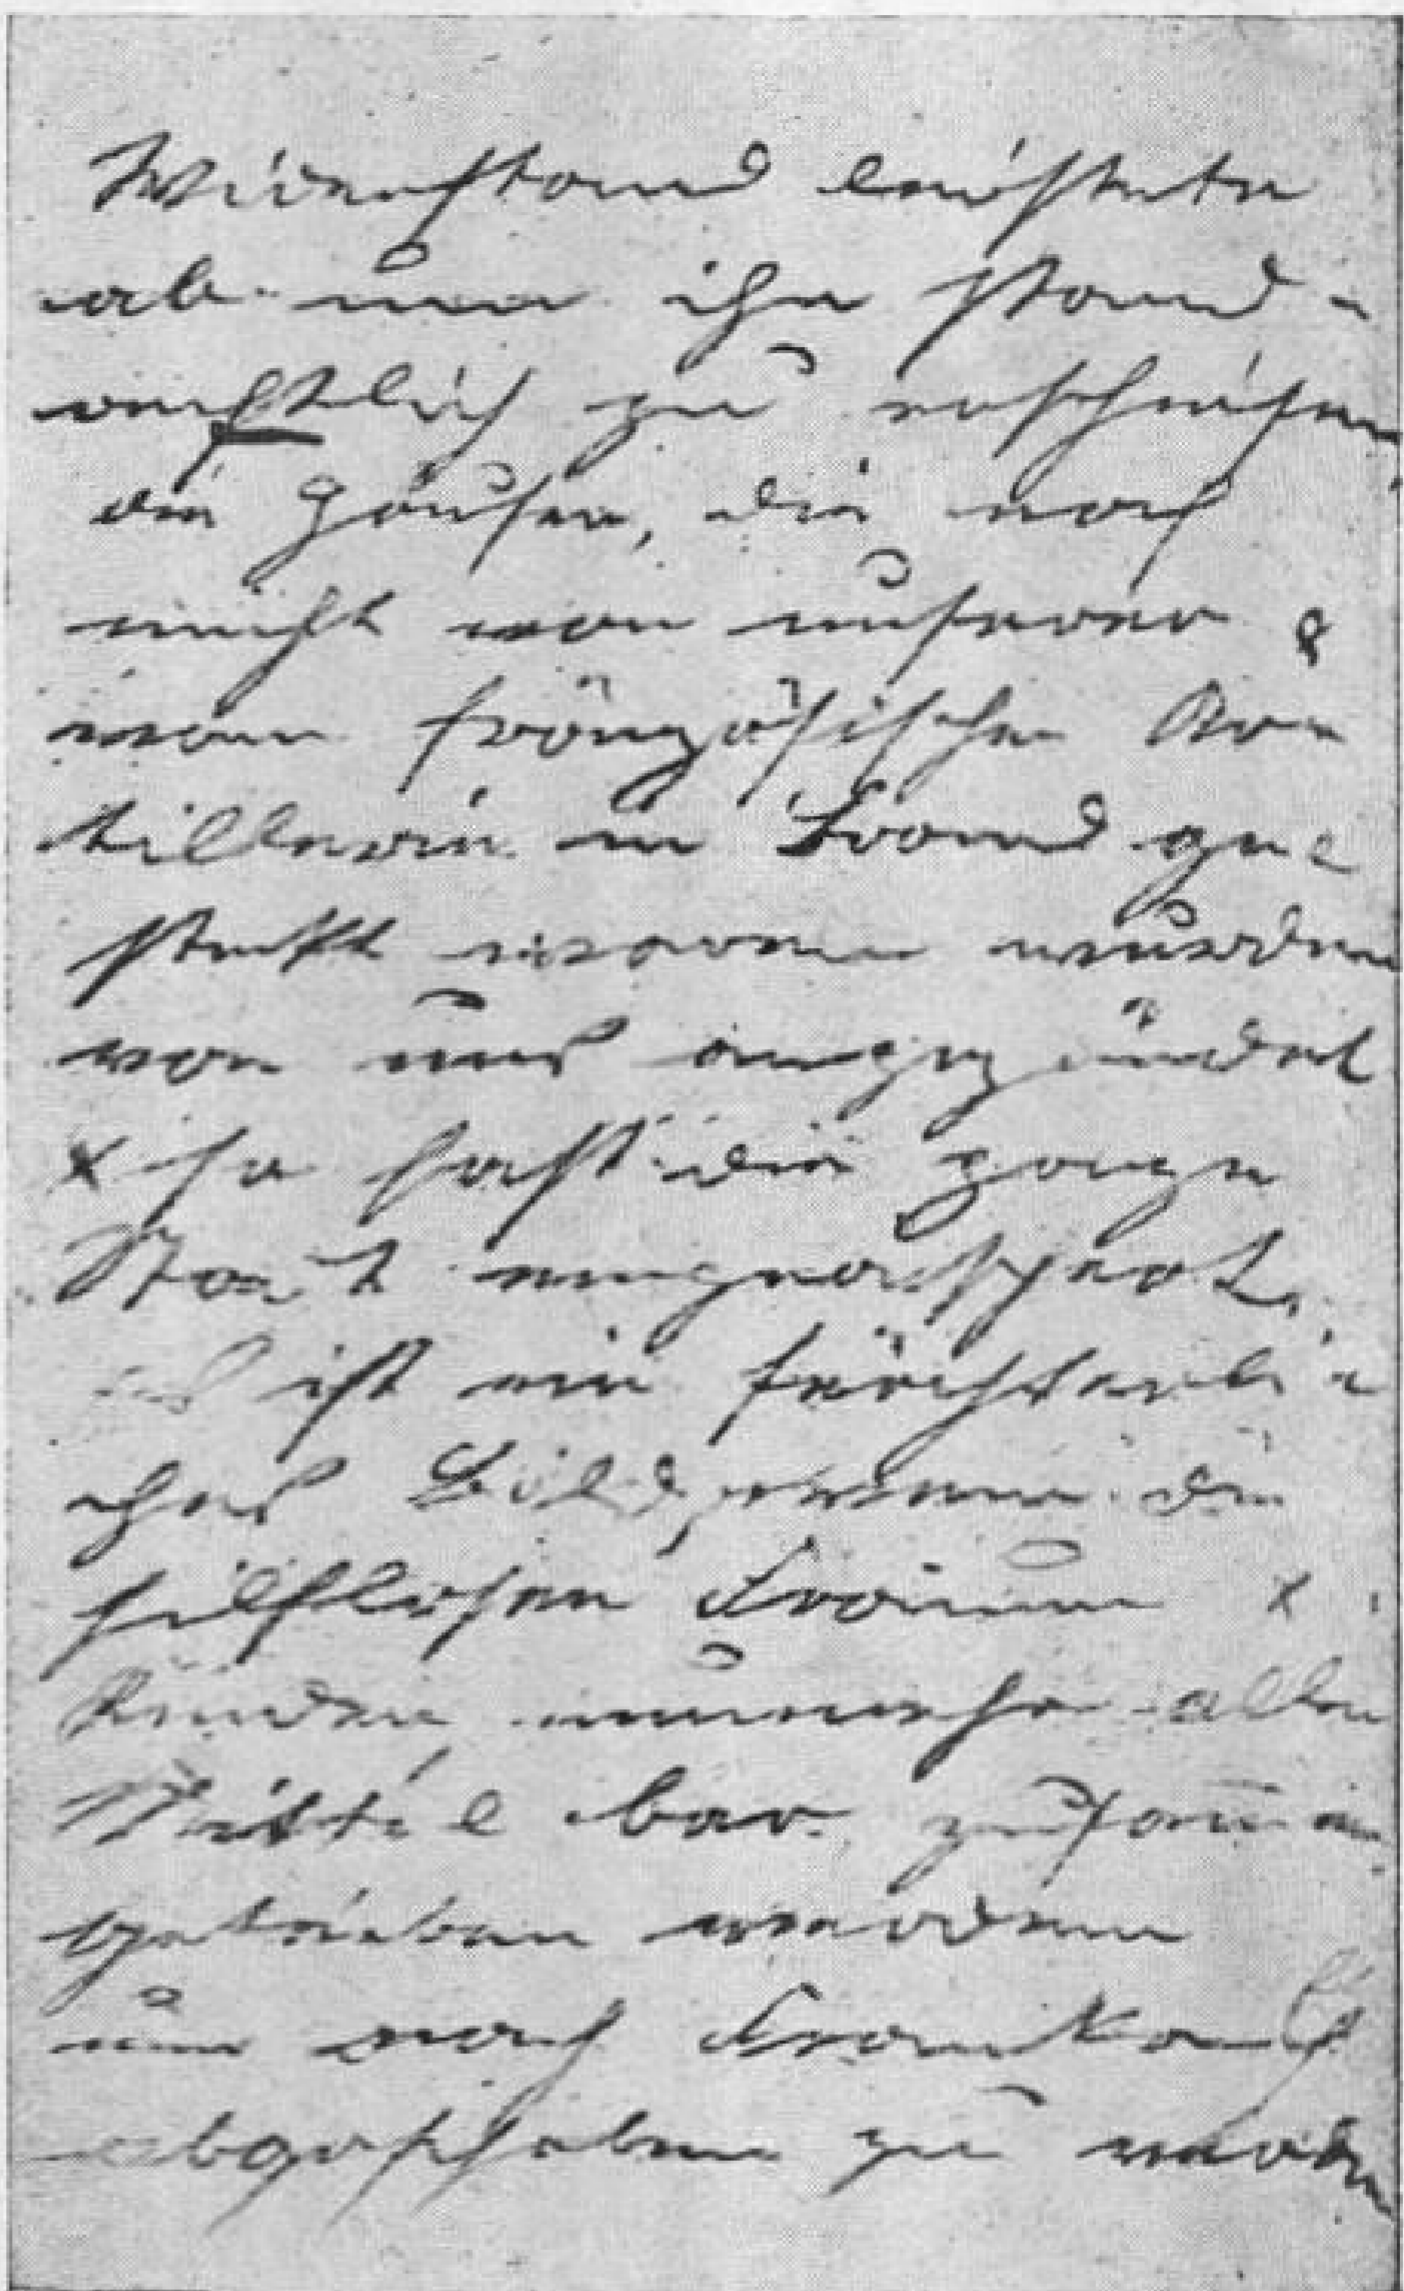 Widerstand leistete
ab um ihn stand-
rechtlich zu erschiesen
die Häuser, die noch
nicht von unserer &
vom französischen Ar-
tillerie in Brand ge-
steckt waren wurden
von uns angezündet
x so fast die ganze
Stadt eingeäschert.
es ist ein fürchterli-
ches Bild, wenn die
hilflosen Frauen x
Kinder, nunmehr aller
Mittel bar zusammen
getrieben werden
um nach Frankreich
abgeschoben zu werden